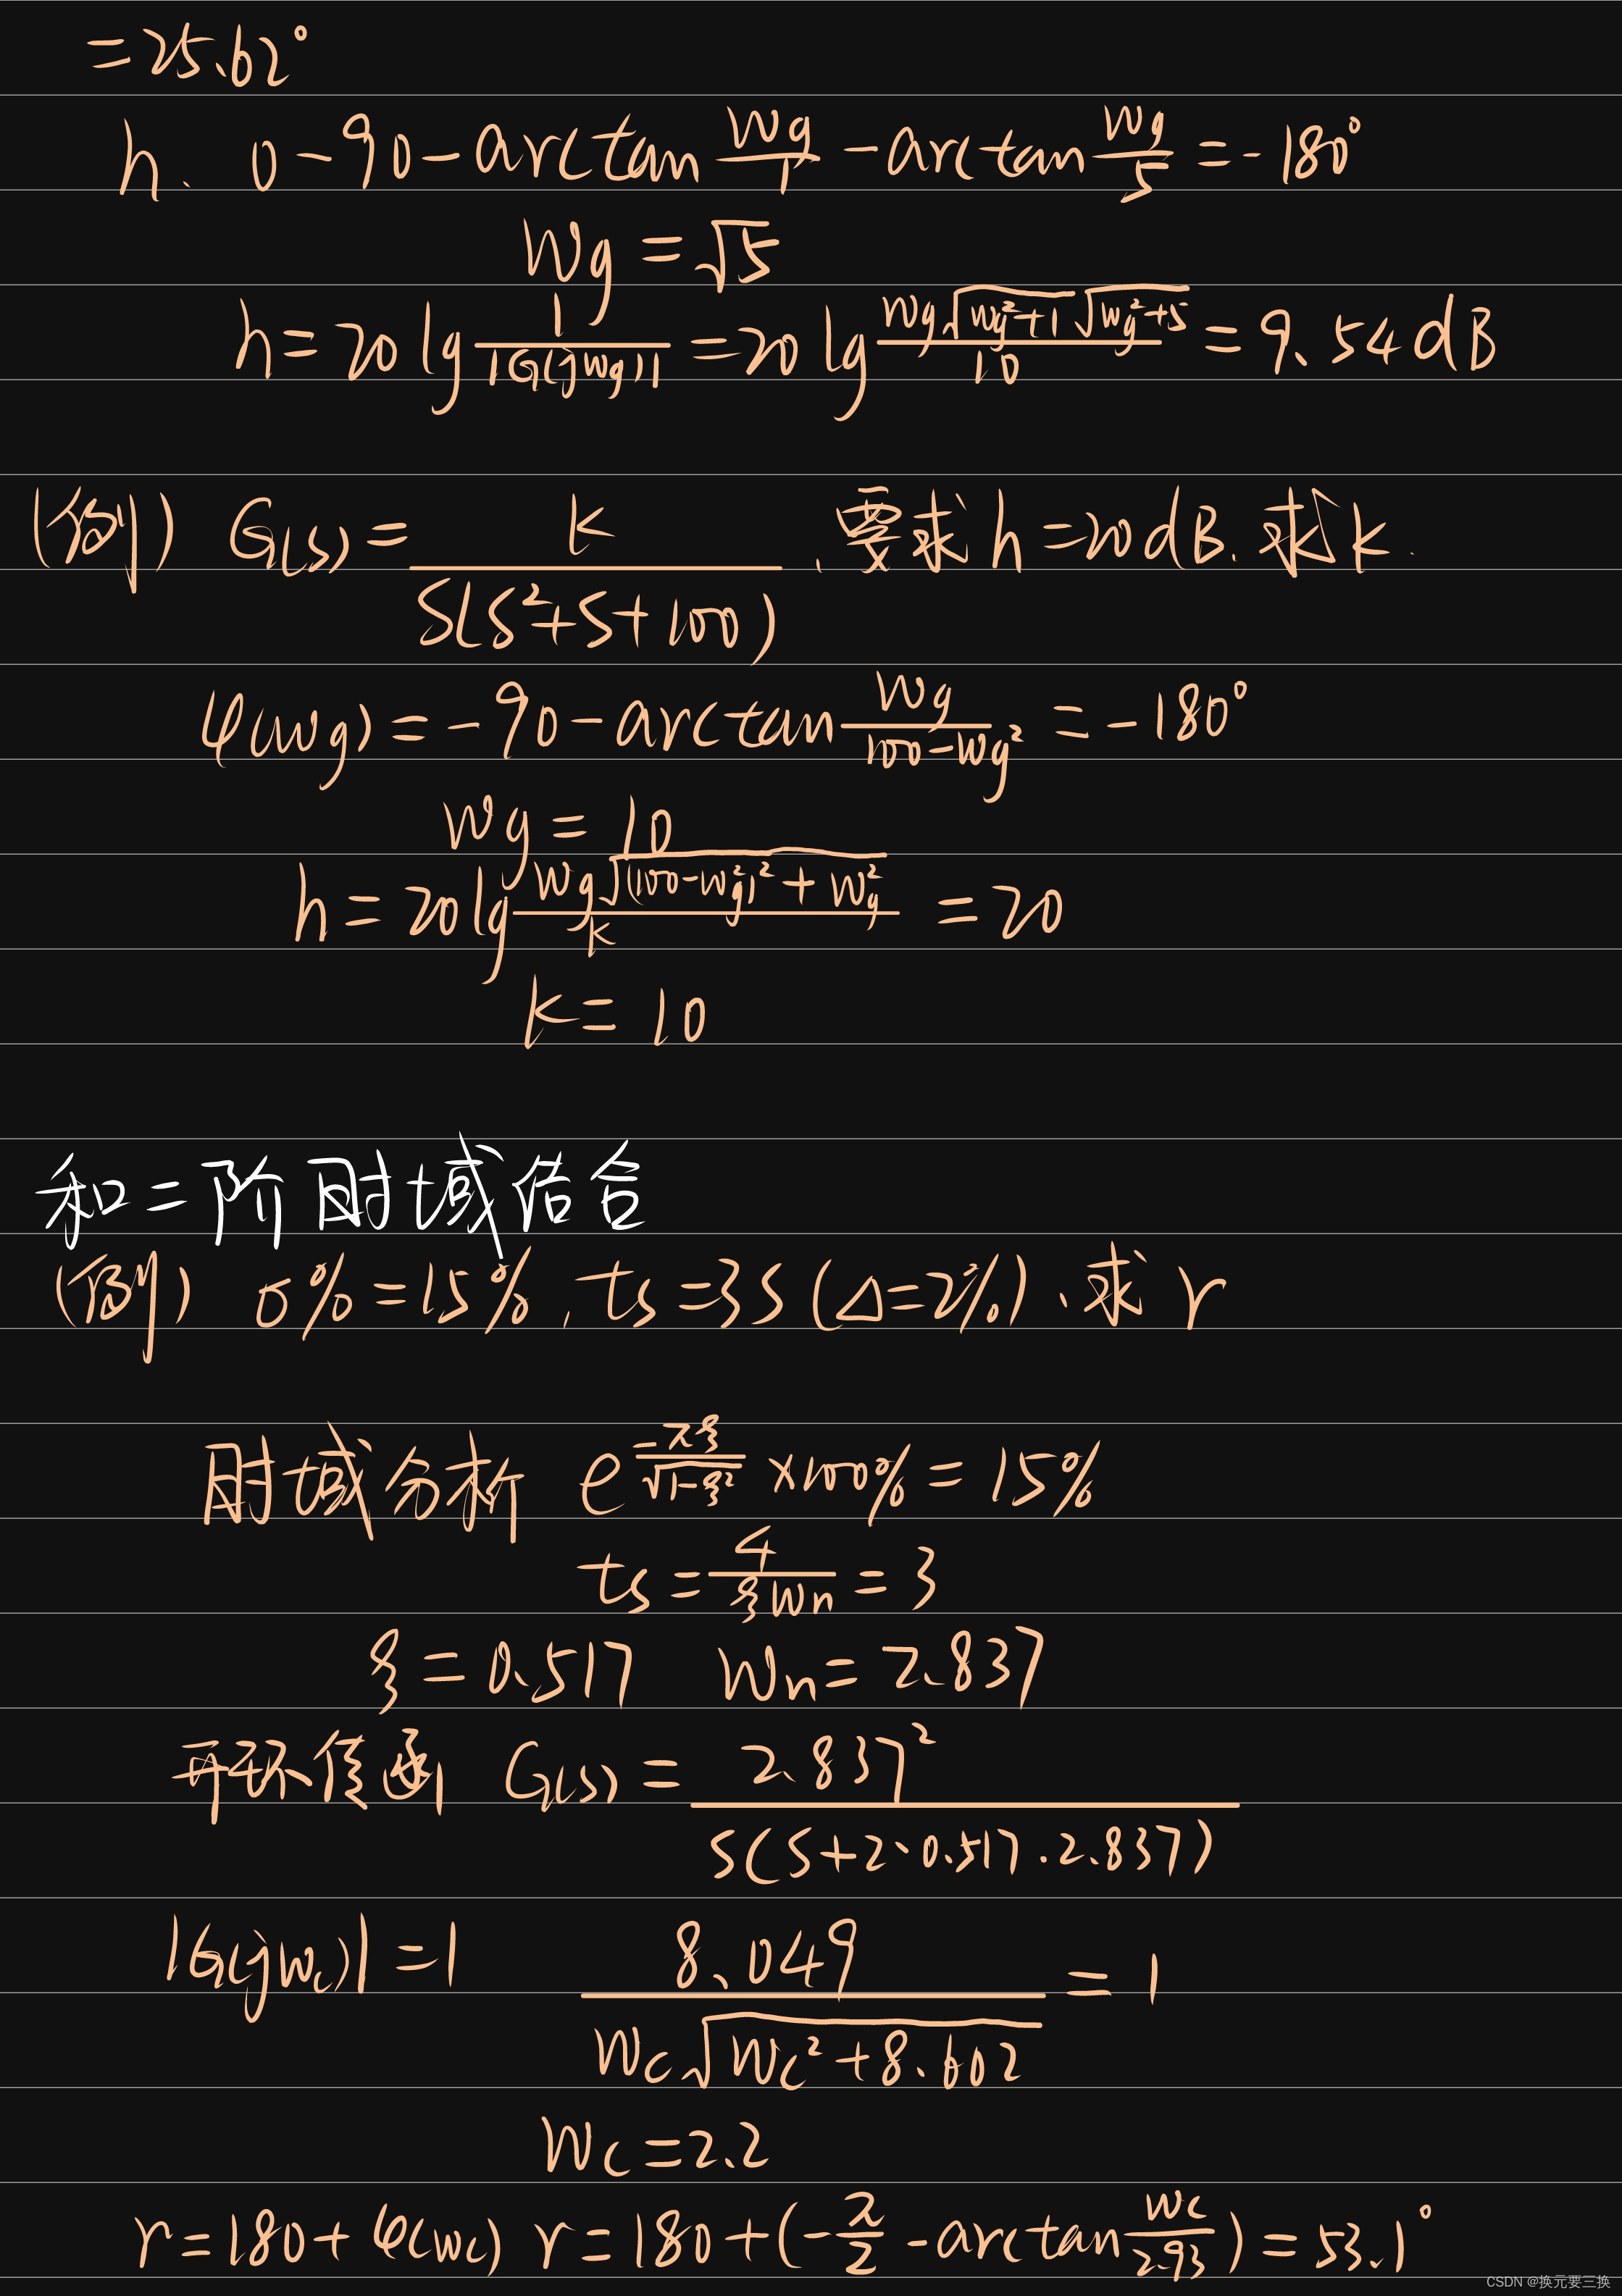 =25.62°
h. 0-90-arctan Wg/1 -arctan Wg/5 =-180°
Wg=√5
h=20lg 1/|G(jWg)| =20lg Wg√(Wg²+1)√(Wg²+5)/10 =9.54dB
(例) G(s)= k/S(S²+S+100) .要求h=20dB.求k.
φ(wg)=-90-arctan Wg/(100-Wg²) =-180°
Wg=10
h=20lg Wg√((100-Wg²)²+Wg²)/k =20
k=10
和二阶时域结合
(例) σ%=15%.ts=3S(Δ=2%).求r
时域分析 e^(-πξ/√(1-ξ²)) ×100%=15%
ts= 4/ξWn =3
ξ=0.517 Wn=2.837
开环传函 G(s)= 2.837²/S(S+2·0.517·2.837)
|G(jWc)|=1 8.049/Wc√(Wc²+8.602) =1
Wc=2.2
r=180+φ(wc) r=180+(-π/2-arctan Wc/2.93)=53.1°
CSDN @换元要三换